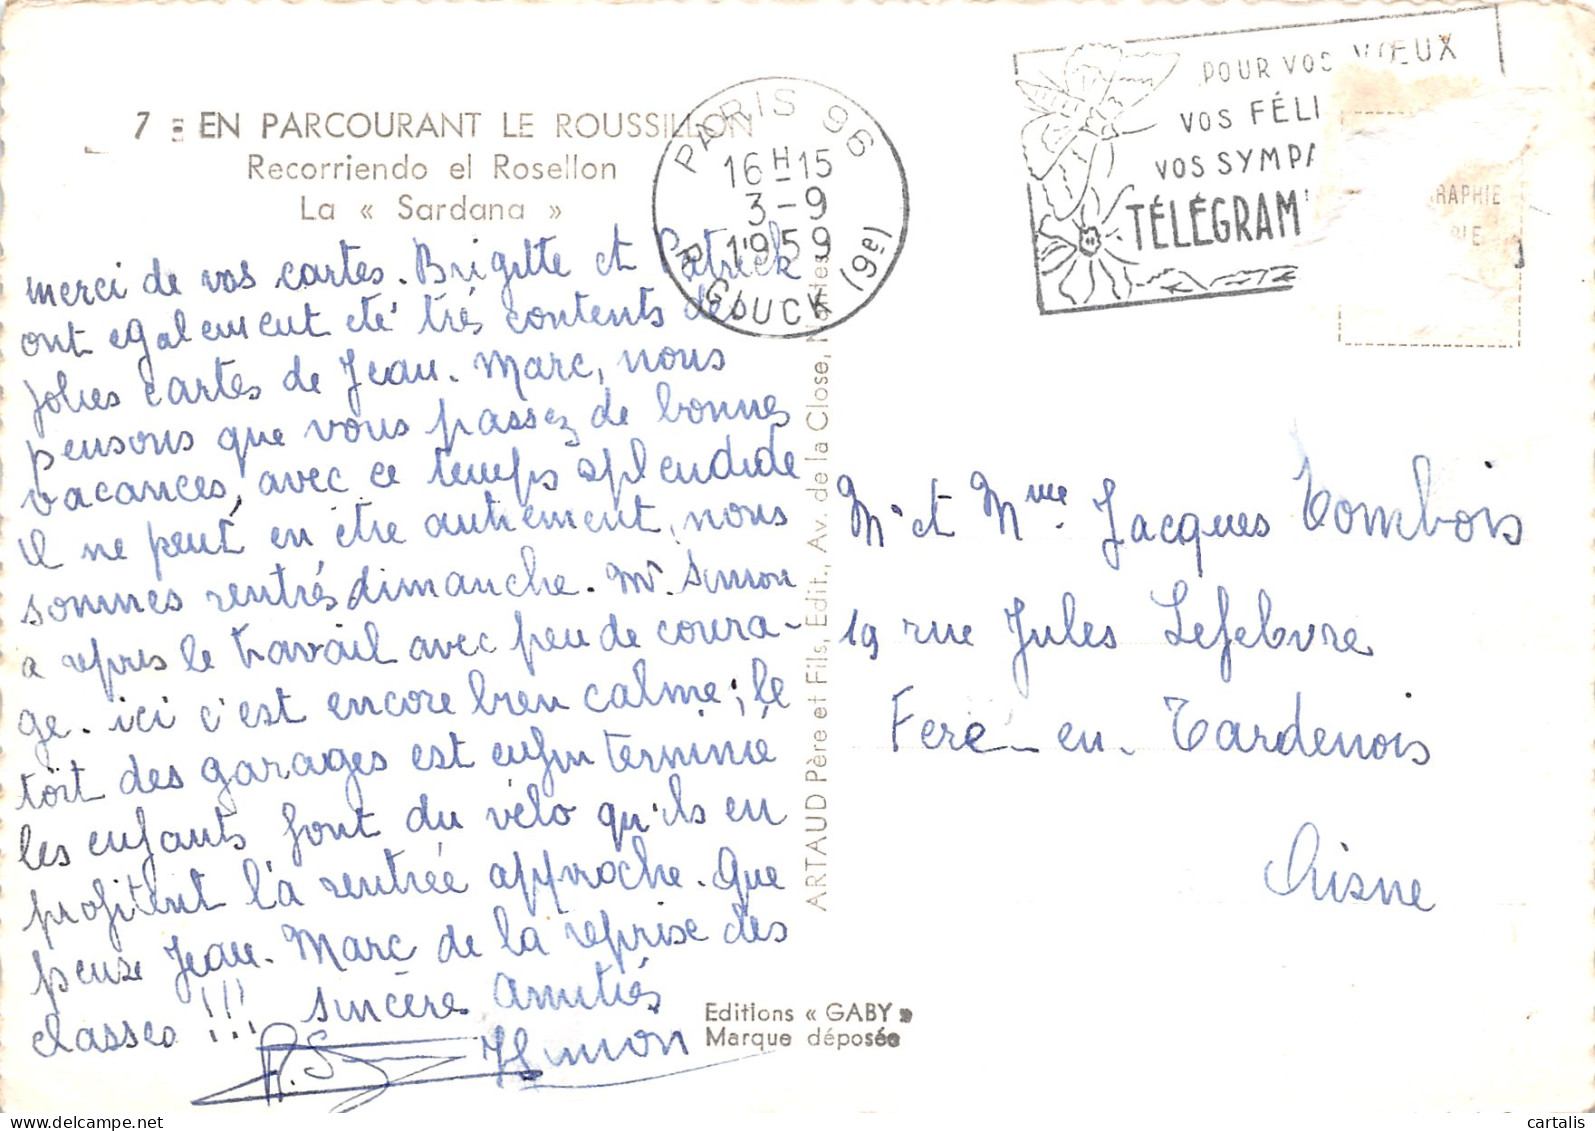 7 - EN PARCOURANT LE ROUSSILLON
Recorriendo el Rosellon
La « Sardana »
merci de vos cartes. Brigitte et Patrick
ont egalement été très contents des
jolies cartes de Jean-Marc, nous
pensons que vous passez de bonnes
vacances, avec ce temps splendide
il ne peut en être autrement, nous
sommes rentrés dimanche. Mr. Simon
a repris le travail avec peu de coura-
ge. ici c'est encore bien calme; le
toit des garages est enfin terminé
les enfants font du vélo qu'ils en
profitent la rentrée approche. Que
pense Jean-Marc de la reprise des
classes !!! sincères amitiés
Simon
Editions « GABY »
Marque déposée
ARTAUD Père et Fils, Edit., Av. de la Close, Nantes
PARIS 96
16H15
3-9
1959
R. GLUCK (9e)
POUR VOS VOEUX
VOS FÉLI
VOS SYMPA
TÉLÉGRAM
RAPHIE
RIE
Mr et Mme Jacques Tombois
19 rue Jules Lefebvre
Fere-en-Tardenois
Aisne
cartalis
delcampe.net